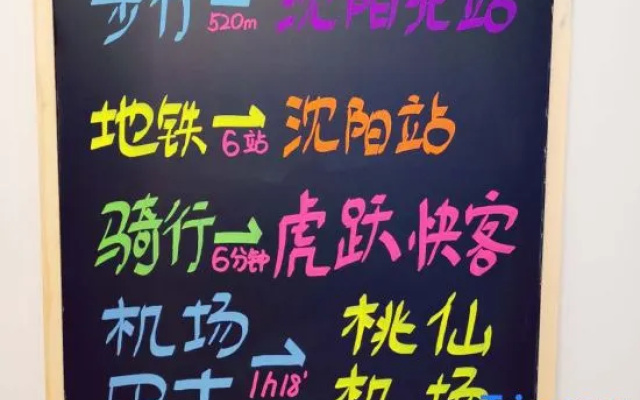 步行→沈阳北站
520m
地铁→沈阳站
6站
骑行→虎跃快客
6分钟
机场 桃仙
巴士→机场
1h18'